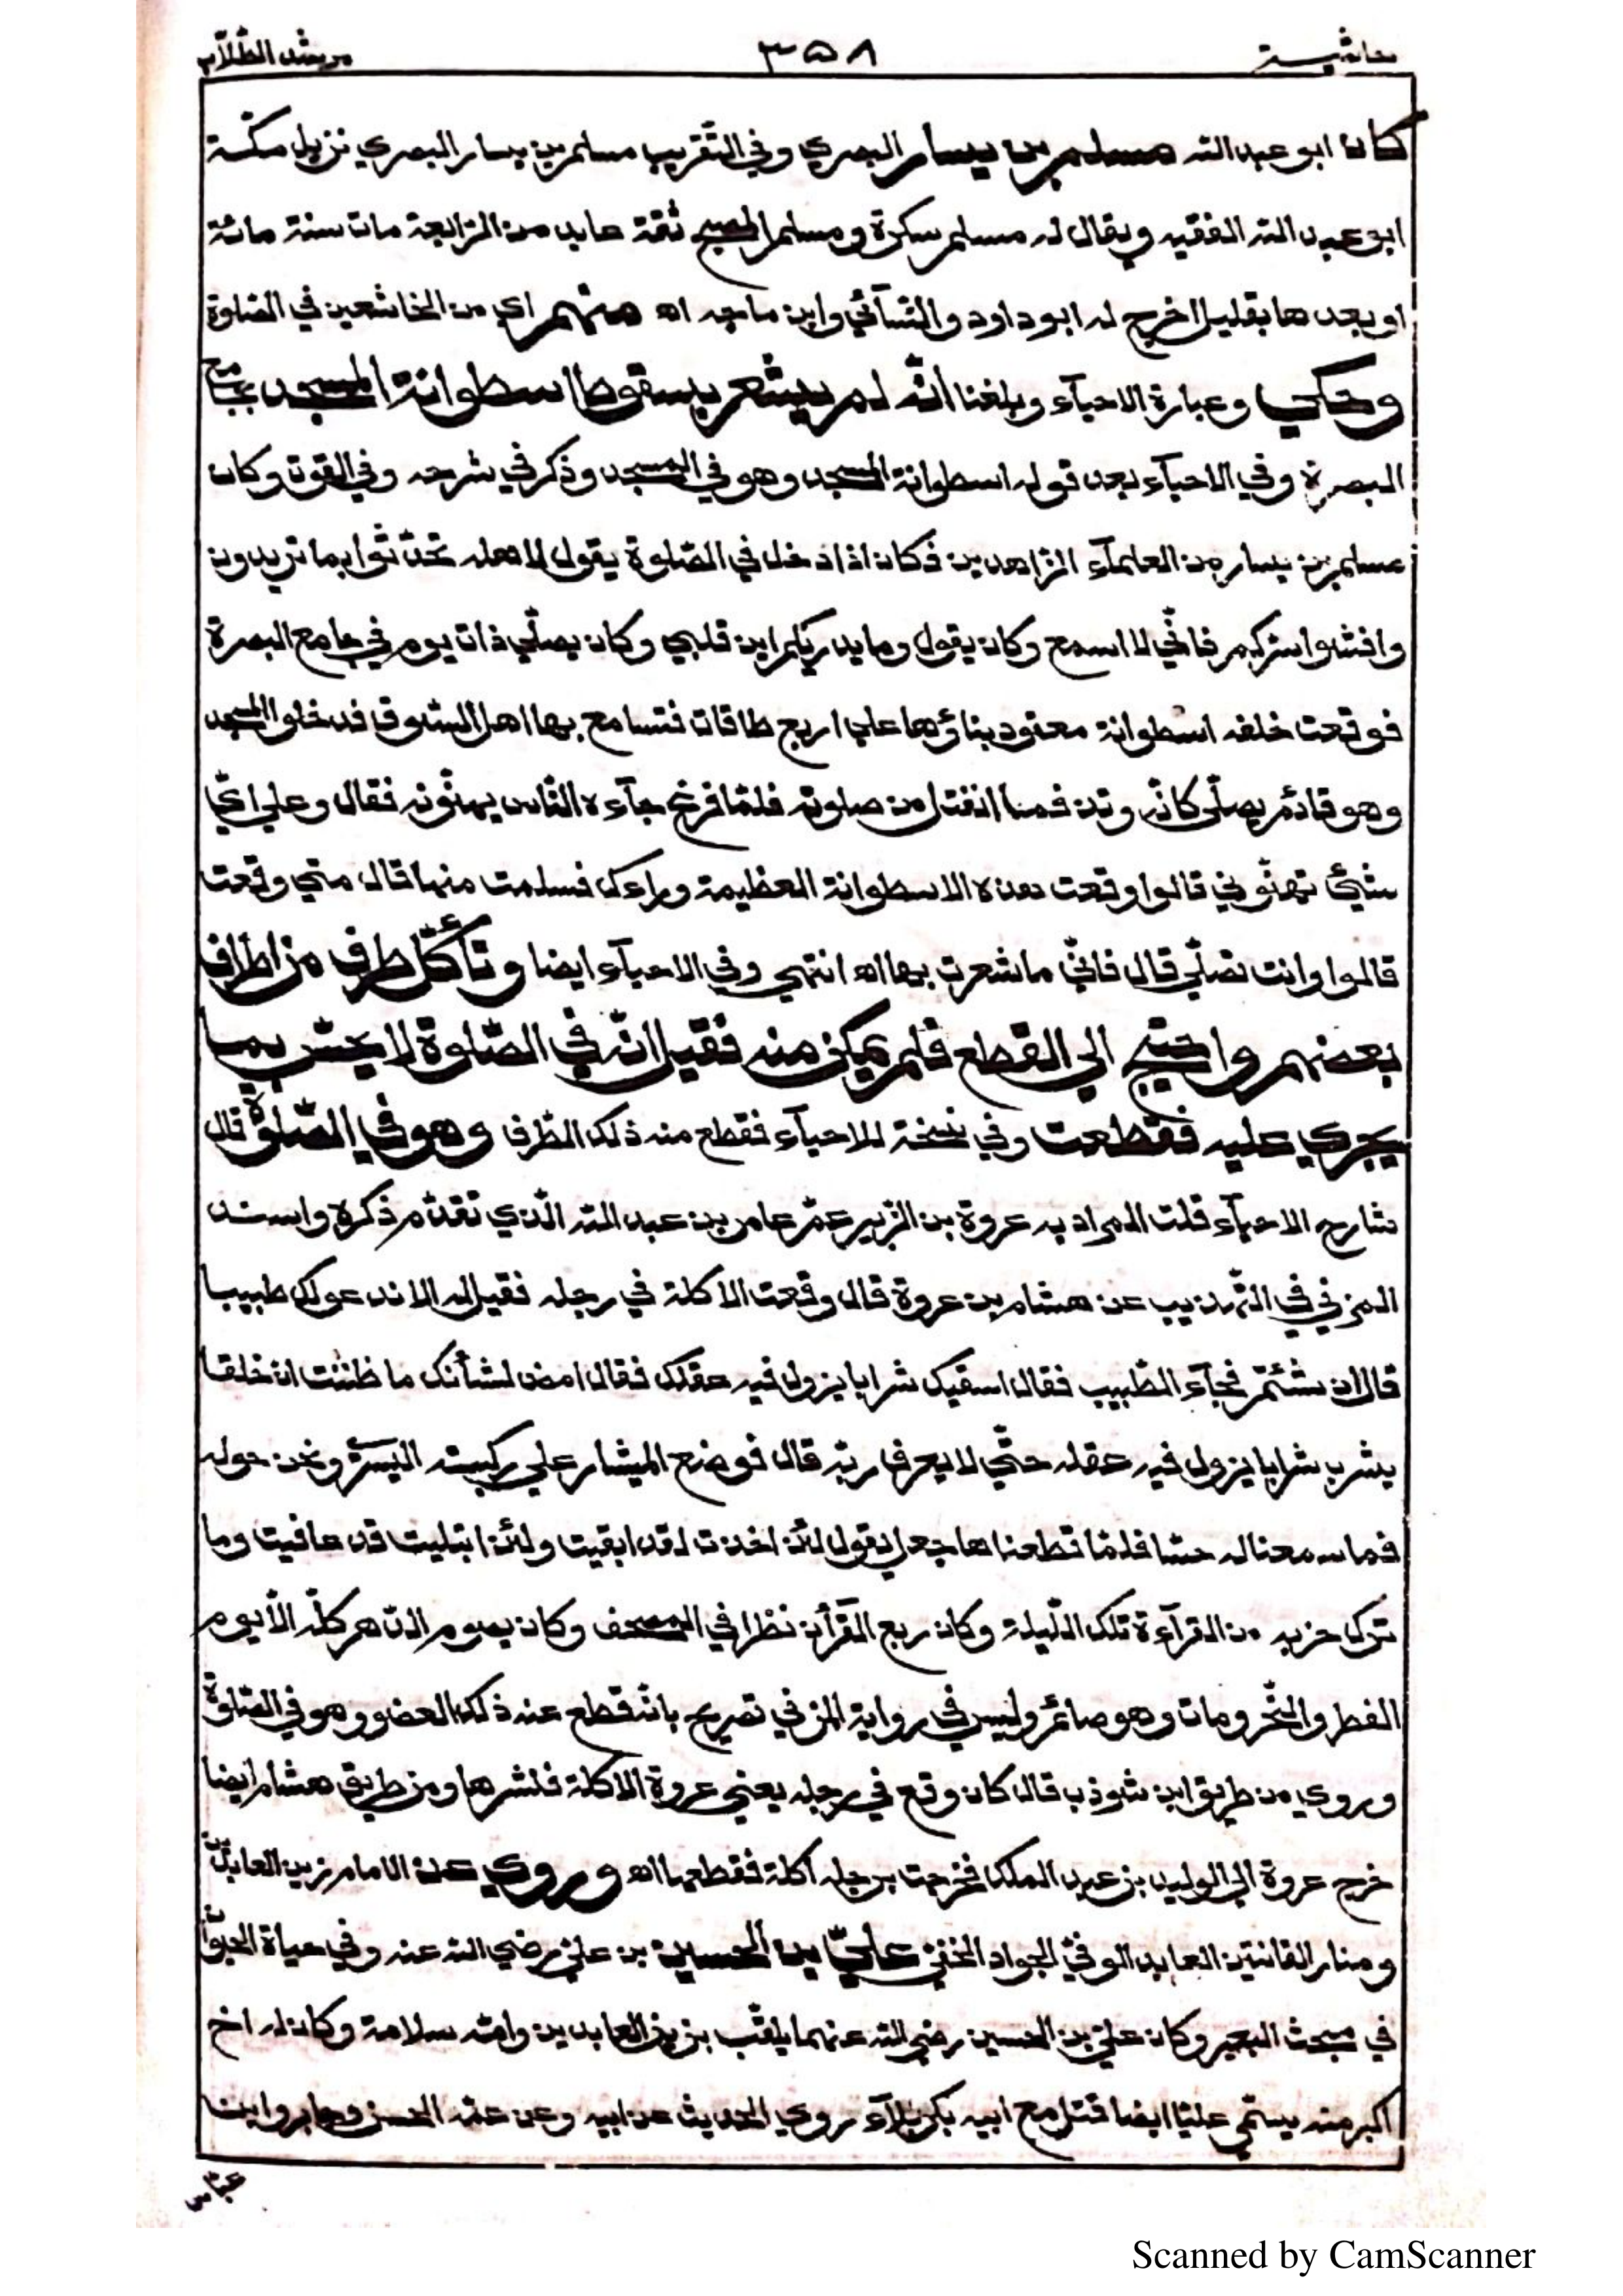 حاشية ٣٥٨ مرشد الطّلّاب
كان ابو عبد الله مسلم بن يسار البصري وفي التّقريب مسلم بن يسار البصري نزيل مكّة
ابو عبد الله الفقيه ويقال له مسلم سكرة ومسلم المصبح ثقة عابد من الرّابعة مات سنة مائة
او بعدها بقليل اخرج له ابو داود والنّسآئي وابن ماجه اه منهم اي من الخاشعين في الصّلوة
وحكي وعبارة الاحيآء وبلغنا انّه لم يشعر بسقوط اسطوانة المسجد بجامع
البصرة وفي الاحيآء بعد قوله اسطوانة المسجد وهو في المسجد وذكر في شرحه وفي القوت وكان
مسلم بن يسار من العلمآء الزاهدين فكان اذا دخل في الصّلوة يقول لاهله تحدّثوا بما تريدون
وافشوا سرّكم فانّي لا اسمع وكان يقول وما يدريكم اين قلبي وكان يصلّي ذات يوم في جامع البصرة
فوقعت خلفه اسطوانة معقود بناؤها علي اربع طاقات فتسامع بها اهل السّوق فدخلوا المسجد
وهو قائم يصلّي كانّه وتد فما انفتل من صلوته فلمّا فرغ جآءه النّاس يهنّونه فقال وعلي ايّ
شيئ تهنّوني قالوا وقعت هذه الاسطوانة العظيمة وراءك فسلمت منها قال متي وقعت
قالوا وانت تصلّي قال فانّي ما شعرت بها اه انتهي وفي الاحيآء ايضا وتأكّل طرف من اطراف
بعضهم واحتيج الي القطع فلم يمكن منه فقيل انّه في الصّلوة لا يحسّ بما
يجري عليه فقطعت وفي نسخة للاحيآء فقطع منه ذلك الطّرف وهو في الصّلوة قال
شارح الاحيآء قلت المراد به عروة بن الزبير عمّ عامر بن عبد الله الّذي تقدّم ذكره واسند
المزني في التّهذيب عن هشام بن عروة قال وقعت الاكلة في رجله فقيل له الا ندعو لك طبيبا
قال ان شئتم فجآء الطّبيب فقال اسقيك شرابا يزول فيه عقلك فقال امض لشأنك ما ظننت ان خلقا
يشرب شرابا يزول فيه عقله حتّي لا يعرف ربّه قال فوضع الميشار علي ركبته اليسري ونحن حوله
فما سمعنا له حسّا فلمّا قطعناها جعل يقول لئن اخذت لقد ابقيت ولئن ابتليت قد عافيت وما
ترك حزبه من القرآءة تلك اللّيلة وكان ربع القرآن نظرا في المصحف وكان يصوم الدّهر كلّه الّا يوم
الفطر والنّحر ومات وهو صائم وليس في رواية المزني تصريح بانّه قطع عنه ذلك العضو وهو في الصّلوة
وروي من طريق ابن شوذب قال كان وقع في رجله يعني عروة الاكلة فنشرها ومن طريق هشام ايضا
خرج عروة الي الوليد بن عبد الملك فخرجت برجله اكلة فقطعها اه وروي عن الامام زين العابدين
ومنار القانتين العابد الوفيّ الجواد الخفيّ عليّ بن الحسين بن عليّ رضي الله عنه وفي حياة الحيوان
في مبحث البعير وكان عليّ بن الحسين رضي الله عنهما يلقّب بزين العابدين وامّه سلامة وكان له اخ
اكبر منه يسمّي عليّا ايضا قتل مع ابيه بكربلآء روي الحديث عن ابيه وعن عمّه الحسن وجابر وابن
عبّاس
Scanned by CamScanner